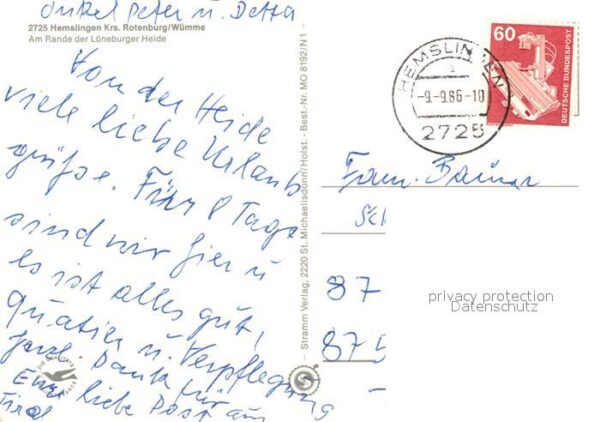 Onkel Peter u. Detta
2725 Hemslingen Krs. Rotenburg/Wümme
Am Rande der Lüneburger Heide
Von der Heide
viele liebe Urlaubs
grüße. Für 8 Tage
sind wir hier u
es ist alles gut,
Quatier u. Verpflegung
Dank für
Eure liebe Post aus
Tirol
Stramm Verlag, 2220 St. Michaelisdonn/Holst. - Best.-Nr. MO 8192/N 1
HEMSLINGEN
-9.-9.86-10
2725
60
DEUTSCHE BUNDESPOST
Fam. Bauer
87
875
privacy protection
Datenschutz